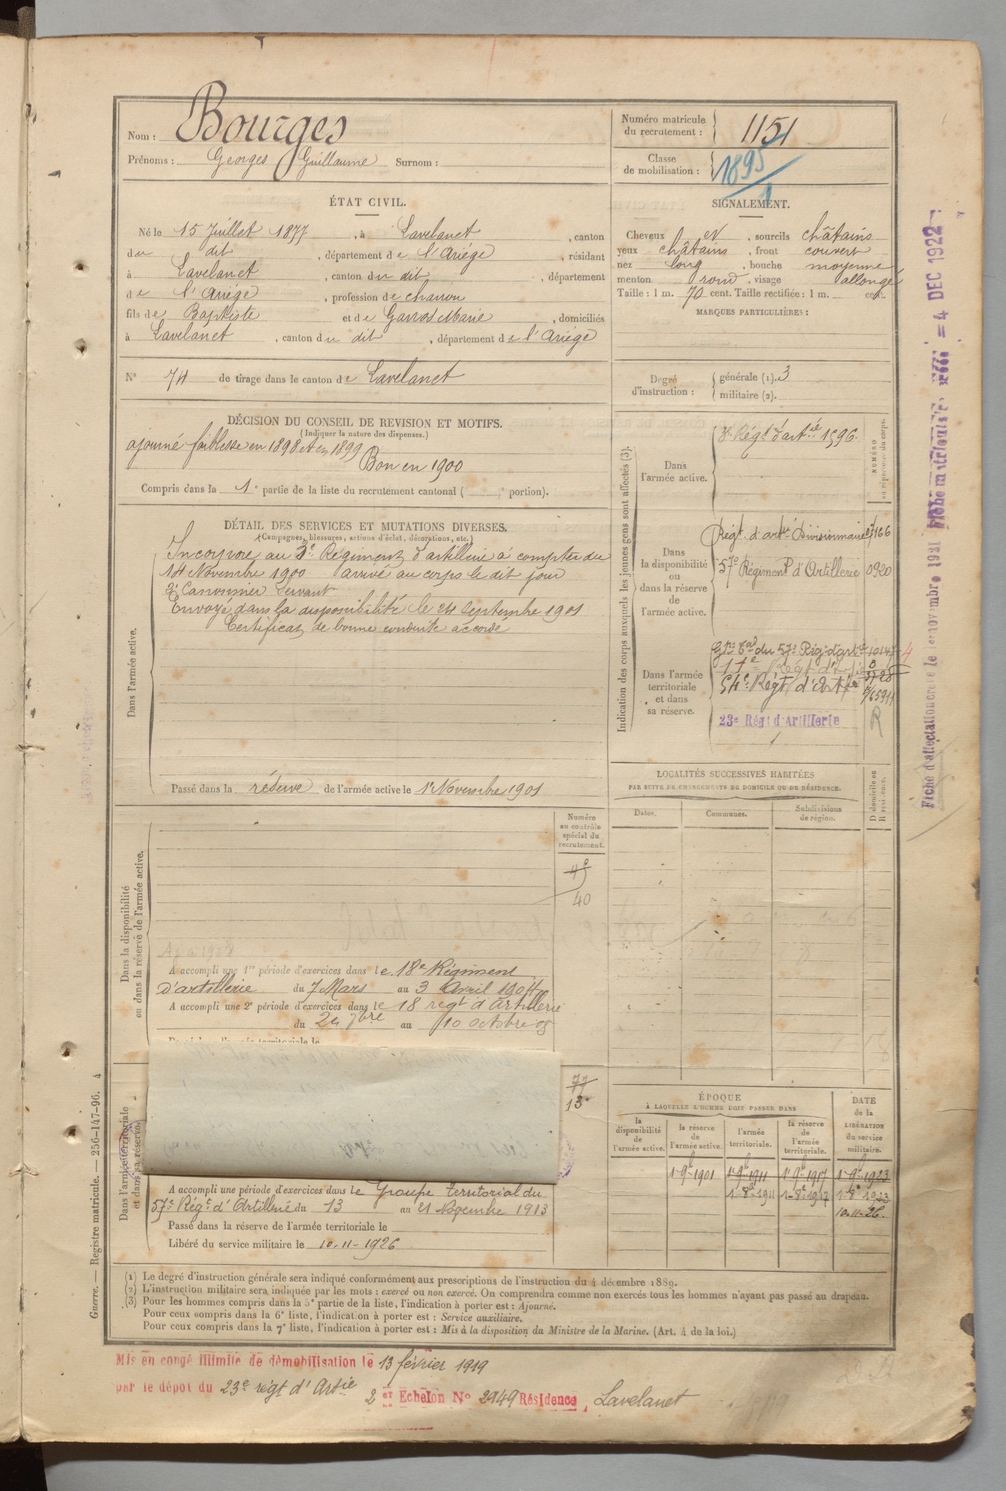 Nom : Bourges
Prénoms : Georges Guillaume Surnom :
Numéro matricule du recrutement : 1151
Classe de mobilisation : 1895
ÉTAT CIVIL.
Né le 15 Juillet 1877, à Lavelanet, canton
du dit, département de l'Ariège, résidant
à Lavelanet, canton du dit, département
de l'Ariège, profession de charron
fils de Baptiste et de Garros Marie, domiciliés
à Lavelanet, canton du dit, département de l'Ariège
N° 74 de tirage dans le canton de Lavelanet
SIGNALEMENT.
Cheveux et, sourcils châtains
yeux châtains, front couvert
nez long, bouche moyenne
menton rond, visage allongé
Taille : 1 m. 70 cent. Taille rectifiée : 1 m. cent.
MARQUES PARTICULIÈRES :
Degré d'instruction : générale (1). 3
militaire (2).
DÉCISION DU CONSEIL DE REVISION ET MOTIFS.
(Indiquer la nature des dispenses.)
ajourné faiblesse en 1898 et en 1899
Bon en 1900
Compris dans la 1e partie de la liste du recrutement cantonal ( e portion).
DÉTAIL DES SERVICES ET MUTATIONS DIVERSES.
(Campagnes, blessures, actions d'éclat, décorations, etc.)
Dans l'armée active.
Incorporé au 3e Régiment d'artillerie à compter du
14 Novembre 1900 arrivé au corps le dit jour
2e Canonnier Servant
Envoyé dans la disponibilité le 24 Septembre 1901
Certificat de bonne conduite accordé
Passé dans la réserve de l'armée active le 1er Novembre 1901
Indication des corps auxquels les jeunes gens sont affectés (3).
NUMÉRO au répertoire du corps.
Dans l'armée active.
3e Régt d'artie 1596.
Dans la disponibilité ou dans la réserve de l'armée active.
Régt d'artie Divisionnaire
57e Régiment d'Artillerie 0920
Dans l'armée territoriale et dans sa réserve.
du 57e Rég d'artie
54e Régt d'Artie
23e Régt d'Artillerie
R
LOCALITÉS SUCCESSIVES HABITÉES
PAR SUITE DE CHANGEMENTS DE DOMICILE OU DE RÉSIDENCE.
Dates. Communes. Subdivisions de région. D domicile ou R résidence.
Dans la disponibilité ou dans la réserve de l'armée active.
Numéro au contrôle spécial du recrutement.
40
A accompli une 1re période d'exercices dans le 18e Régiment
d'artillerie du 7 Mars au 3 Avril 1904
A accompli une 2e période d'exercices dans le 18 régt d'Artillerie
du 24 7bre au 10 octobre
Dans l'armée territoriale et dans sa réserve.
77
13
A accompli une période d'exercices dans le Groupe territorial du
57e Régt d'Artillerie du 13 au 21 Novembre 1913
Passé dans la réserve de l'armée territoriale le
Libéré du service militaire le 10-11-1926
ÉPOQUE
À LAQUELLE L'HOMME DOIT PASSER DANS
DATE de la LIBÉRATION du service militaire.
la disponibilité de l'armée active. la réserve de l'armée active. l'armée territoriale. la réserve de l'armée territoriale.
1-9b-1901 1-9b-1911 1-9b-1917 1-9b-1923
10-11-26.
(1) Le degré d'instruction générale sera indiqué conformément aux prescriptions de l'instruction du 4 décembre 1889.
(2) L'instruction militaire sera indiquée par les mots : exercé ou non exercé. On comprendra comme non exercés tous les hommes n'ayant pas passé au drapeau.
(3) Pour les hommes compris dans la 5e partie de la liste, l'indication à porter est : Ajourné.
Pour ceux compris dans la 6e liste, l'indication à porter est : Service auxiliaire.
Pour ceux compris dans la 7e liste, l'indication à porter est : Mis à la disposition du Ministre de la Marine. (Art. 4 de la loi.)
Mis en congé illimité de démobilisation le 13 février 1919
par le dépôt du 23e régt d'Artie 2 er Echelon N° 2949 Résidence, Lavelanet
Guerre. — Registre matricule. — 256-147-96. 4
Fiche d'affectation = 4 DEC 1922